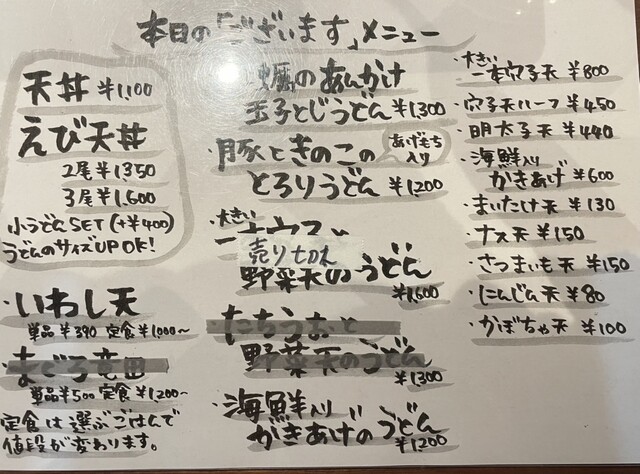 本日の「ございます」メニュー
天丼 ¥1,100
えび天丼
2尾 ¥1350
3尾 ¥1,600
小うどんSET (+¥400)
うどんのサイズUP OK!
・いわし天
単品 ¥390 定食 ¥1,000~
・まぐろ竜田
単品¥500 定食 ¥1,200~
定食は選ぶごはんで
値段が変わります。
牡蠣のあんかけ
玉子とじうどん ¥1,300
・豚ときのこの
あげもち
入り
とろりうどん ¥1,200
・大きい
売り切れ
野菜天のうどん
¥1,600
・たちうおと
野菜天のうどん
¥1300
・海鮮入り
かきあげのうどん
¥1200
・大きい
一本穴子天 ¥800
・穴子天ハーフ ¥450
・明太子天 ¥440
・海鮮入り
かきあげ ¥600
・まいたけ天 ¥130
・ナス天 ¥150
・さつまいも天 ¥150
・にんじん天 ¥80
・かぼちゃ天 ¥100